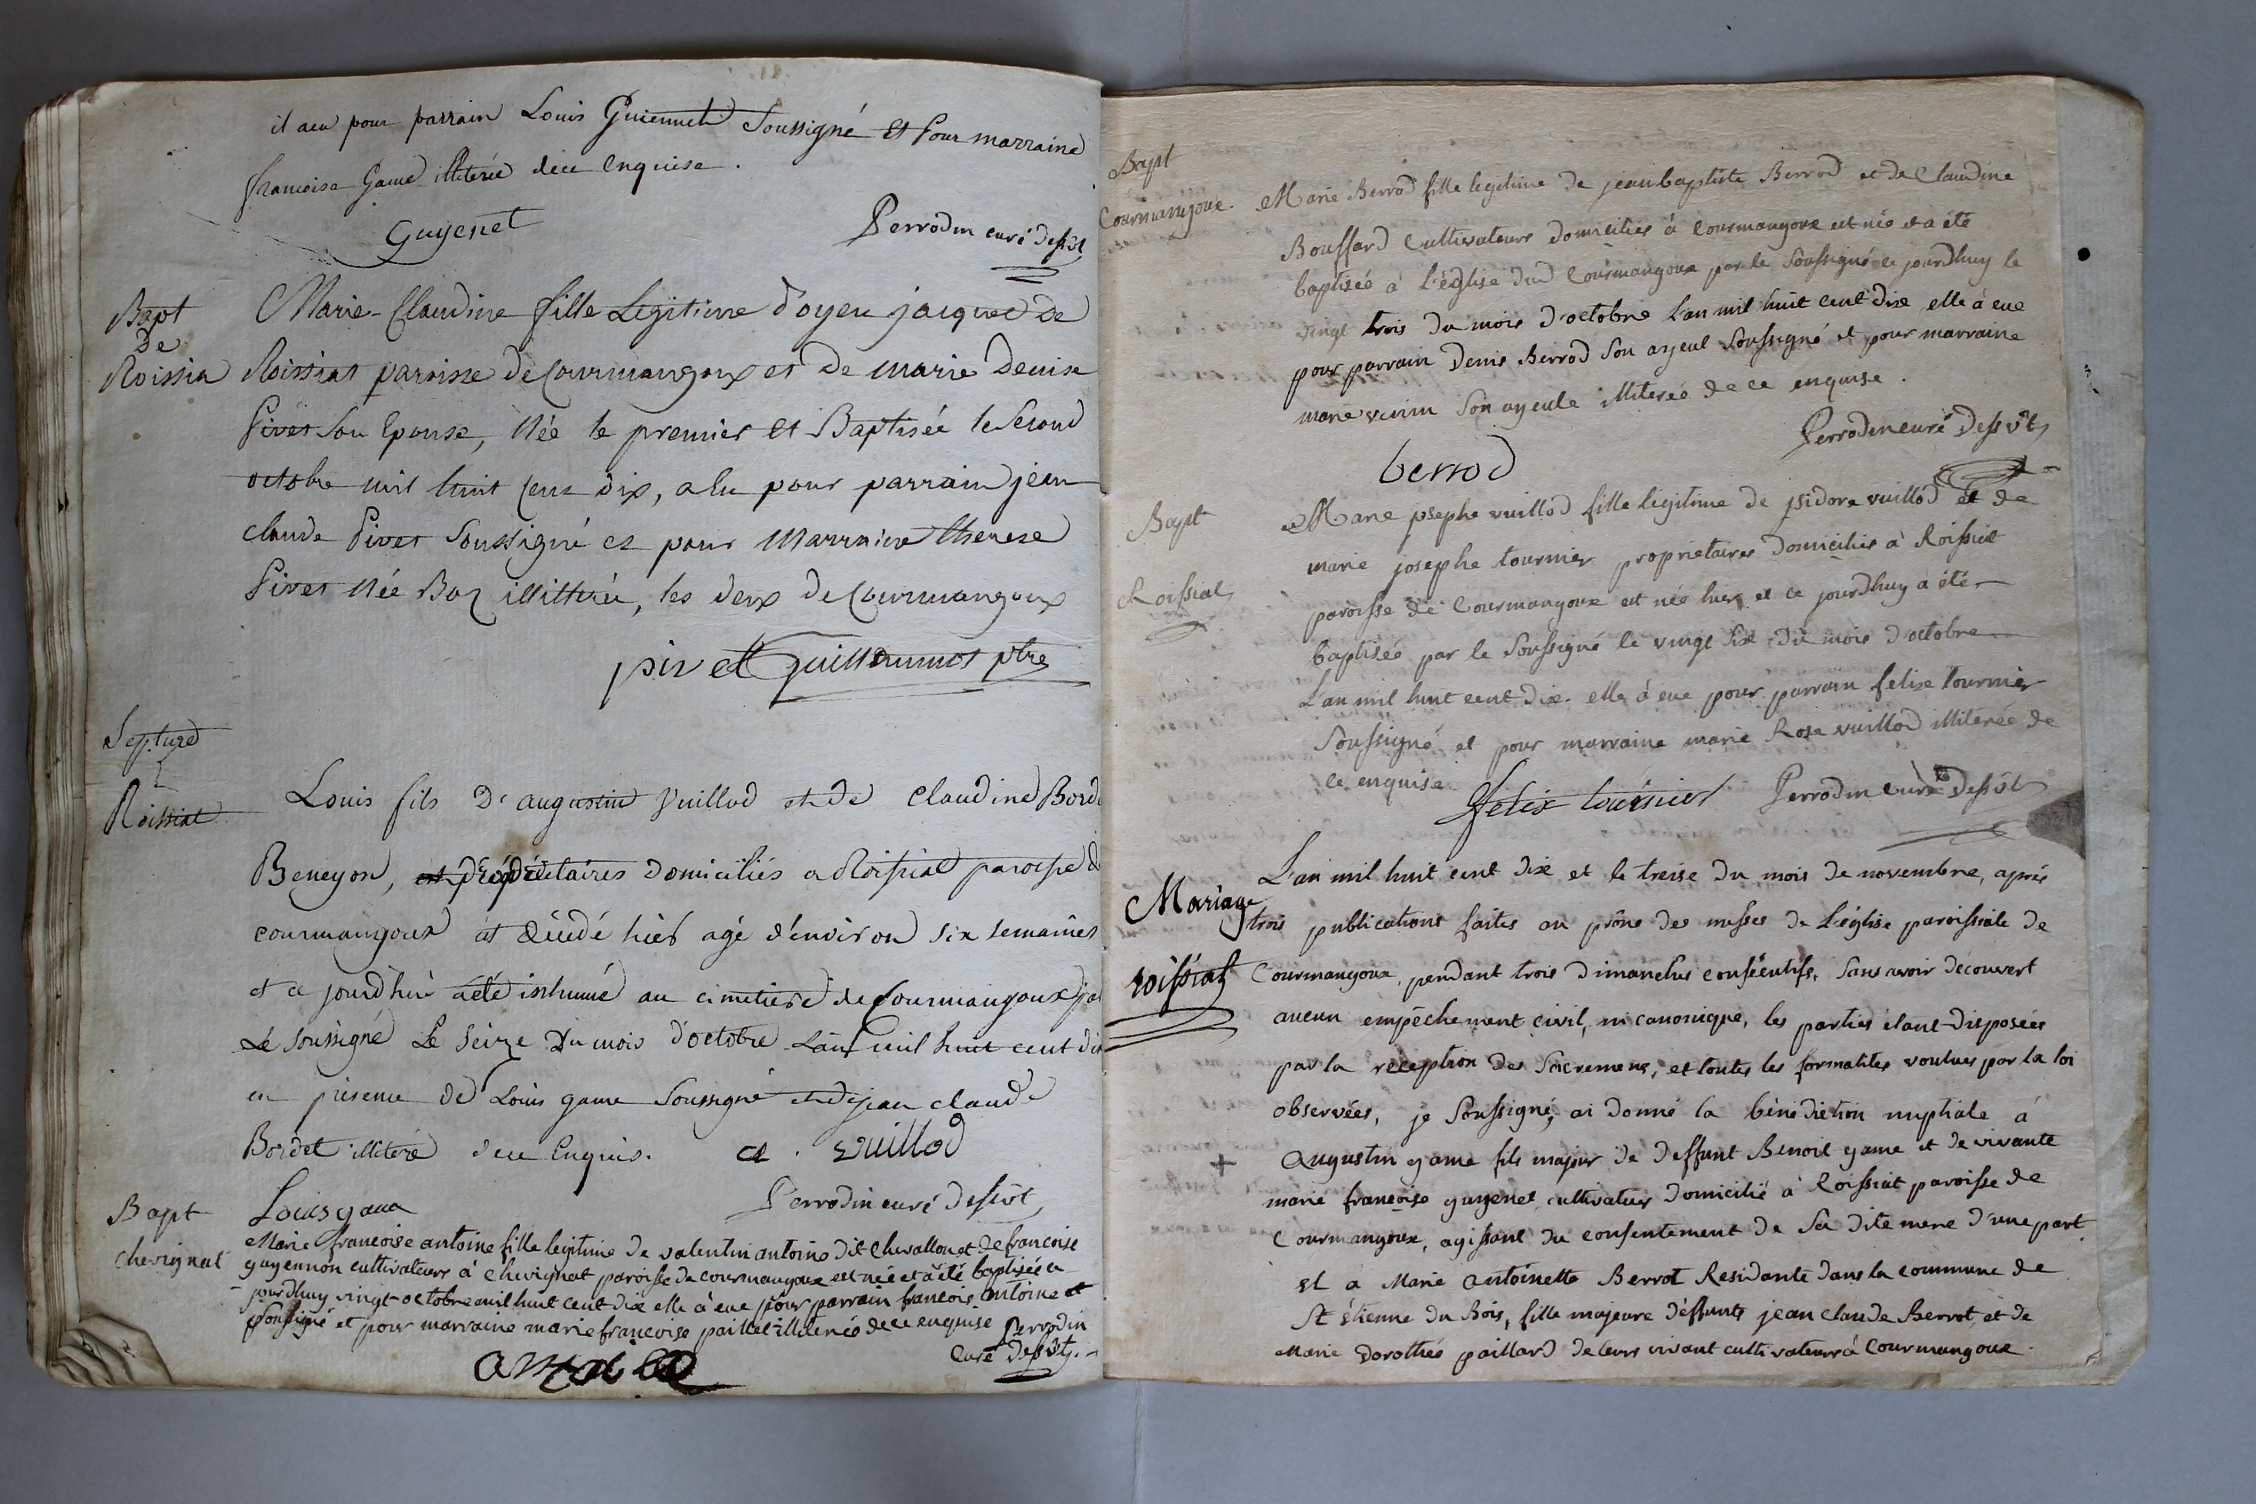 il a eu pour parrain Louis Guiennet Soussigné et Pour marraine
francoise Game illiterée de ce Enquise.
Guyenet
Perrodin curé dessvt
Bapt
De
Roissia
Marie-Claudine fille Legitime d'oyen jacques de
Roissiat paroisse de Courmangoux et De Marie Denise
Pivet Son Epouse, Née le premier et Baptisée le Second
octobre mil huit cent dix, a Eu pour parrain jean
claude Pivet Soussigné et pour Marraine therese
Pivet Née Boz illitterée, les deux de Courmangoux
pivet Guillaumot ptre
Septure
Roissiat
Louis fils D'augustin Vuillod et de Claudine Bord
Beneyon, propriétaires Domiciliés a Roissiat paroisse d
courmangoux est décédé hier agé d'environ six semaines
et ce jourd'hui a été inhumé au cimetiere de Courmangoux pa
Le soussigné Le Seize Du mois d'octobre L'an mil huit cent dix
en présence de Louis game Soussigné et de jean claude
Bordet illiteré de ce Enquis. a. vuillod
Louis gama
Perrodin curé dessvt
Bapt
Chevignat
Marie francoise antoine fille legitime de valentin antoine dit Chevallon et de francoise
guyennon cultivateurs à Chevignat paroisse de courmangoux est née et a été baptisée ce
jourdhuy vingt octobre mil huit cent dix elle à eue pour parrain francois antoine
soussigné et pour marraine marie francoise paillet illiterée de ce enquise
Perrodin
Curé dessvt
antoine
Bapt
Courmangoux.
Marie Berrod fille legitime de jean baptiste Berrod et de Claudine
Bouffard Cultivateurs domiciliés à Courmangoux est née et a été
baptisée à l'église dud Courmangoux par le Soussigné ce jourdhuy le
vingt trois du mois d'octobre l'an mil huit cent dix elle à eue
pour parrain Denis Berrod Son ayeul Soussigné et pour marraine
marie vuvin Son ayeule illiterée de ce enquise.
Perrodin curé Dessvt
berrod
Bapt
Roissiat
Marie josephe vuillod fille légitime de isidore vuillod et de
marie josephe tournier proprietaires domiciliés à Roissiat
paroisse de Courmangoux est née hier et ce jourdhuy a été
baptisée par le Soussigné le vingt six du mois d'octobre
L'an mil huit cent dix. elle à eue pour parrain felix tournier
Soussigné et pour marraine marie Rose vuillod illiterée de
ce enquise
felix tournier Perrodin curé Dessvt
Mariage
roissiat
L'an mil huit cent dix et le treise du mois de novembre, après
trois publications faites au prône des messes de l'église paroissiale de
Courmangoux, pendant trois dimanches consécutifs, Sans avoir decouvert
aucun empêchement civil, ni canonique, les parties étant disposées
par la réception des Sacremens, et toutes les formalités voulues par la loi
observées, je Soussigné, ai donné la bénédiction nuptiale à
+ Augustin game fils majeur de deffunt Benoit game et de vivante
marie françoise guyenet cultivateur domicilié à Roissiat paroisse de
Courmangoux, agissant du consentement de Sa dite mere d'une part
et a Marie Antoinette Berrot Residante dans la commune de
St étienne du Bois, fille majeure déffunts jean claude Berrot, et de
Marie Dorothée paillard de leurs vivant cultivateurs à Courmangoux.